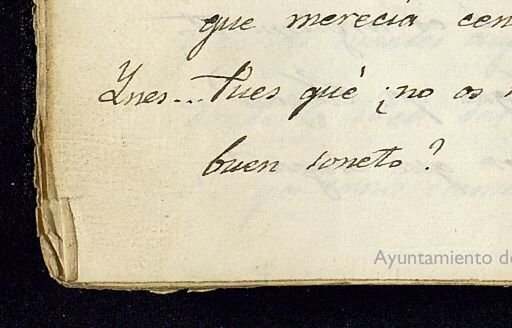 que merecia cen
Ynes... Pues qué ¿no os
buen soneto?
Ayuntamiento d